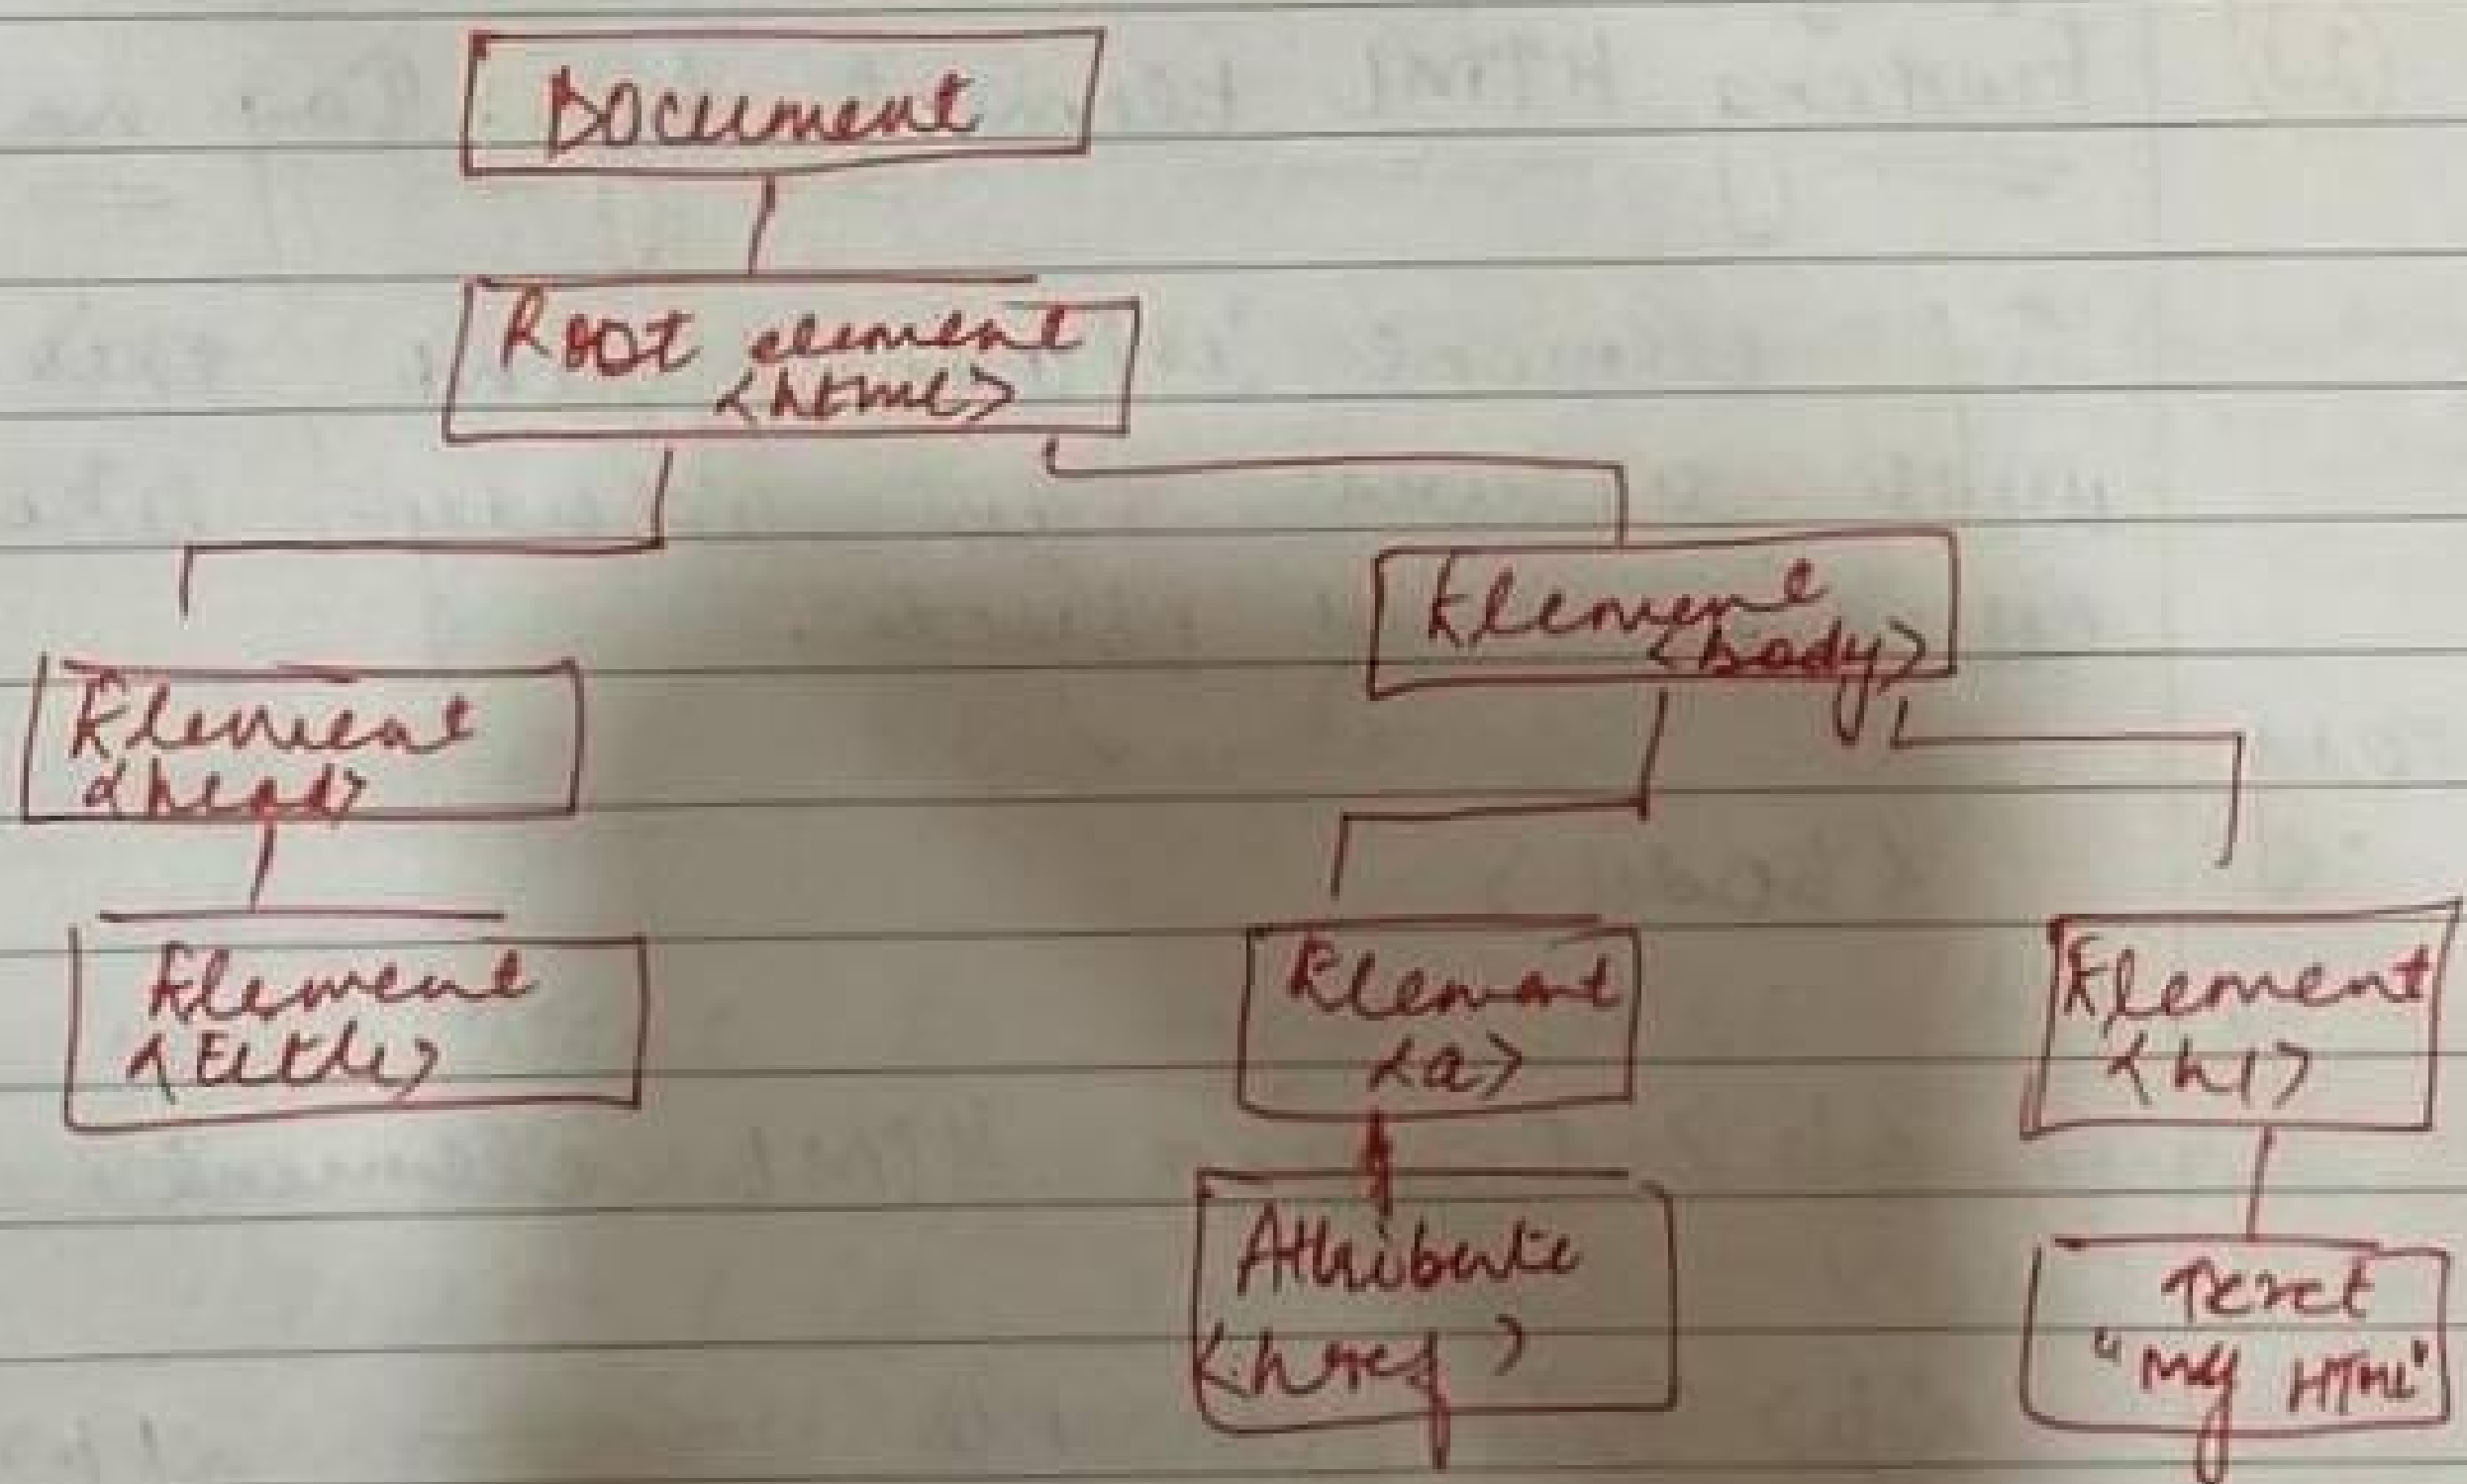 Document
Root element
<html>
Element
<body>
Element
<head>
Element
<title>
Element
<a>
Element
<h1>
Attribute
<href>
Text
"My HTML"